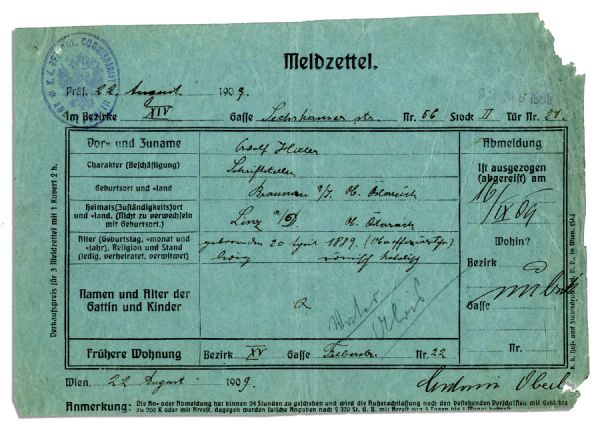 K. K. BEZ. POL. COMMISSARIAT
Meldzettel.
Präs. 22 August 1909.
Im Bezirke XIV Gasse Sechshauser str. Nr. 56 Stock II Tür Nr. 21.
Vor- und Zuname Adolf Hitler
Abmeldung
Charakter (Beschäftigung) Schriftsteller
Ist ausgezogen
(abgereist) am
Geburtsort und -land Braunau a/I. Ob. Österreich
16/IX 09
Heimats(Zuständigkeits)ort
und -land. (Nicht zu verwechseln
mit Geburtsort.)
Linz a/D Ob. Österreich
Alter (Geburtstag, -monat und
-jahr), Religion und Stand
(ledig, verheiratet, verwitwet)
geboren den 20 April 1889.
ledig römisch katolisch
Wohin?
Bezirk
Gasse
Nr.
Namen und Alter der
Gattin und Kinder
Vater
Alois
Frühere Wohnung Bezirk XV Gasse Felberstr. Nr. 22
Wien, 22 August 1909.
Antonie Oberl
Anmerkung: Die An- oder Abmeldung hat binnen 24 Stunden zu geschehen und wird die Außerachtlassung nach den bestehenden Vorschriften mit Geld bis
zu 200 K oder mit Arrest, dagegen werden falsche Angaben nach § 320 St. G. B. mit Arrest von 3 Tagen bis 1 Monat
Verkaufspreis für 3 Meldzettel mit 1 Kuvert 2 h.
K. k. Hof- und Staatsdruckerei